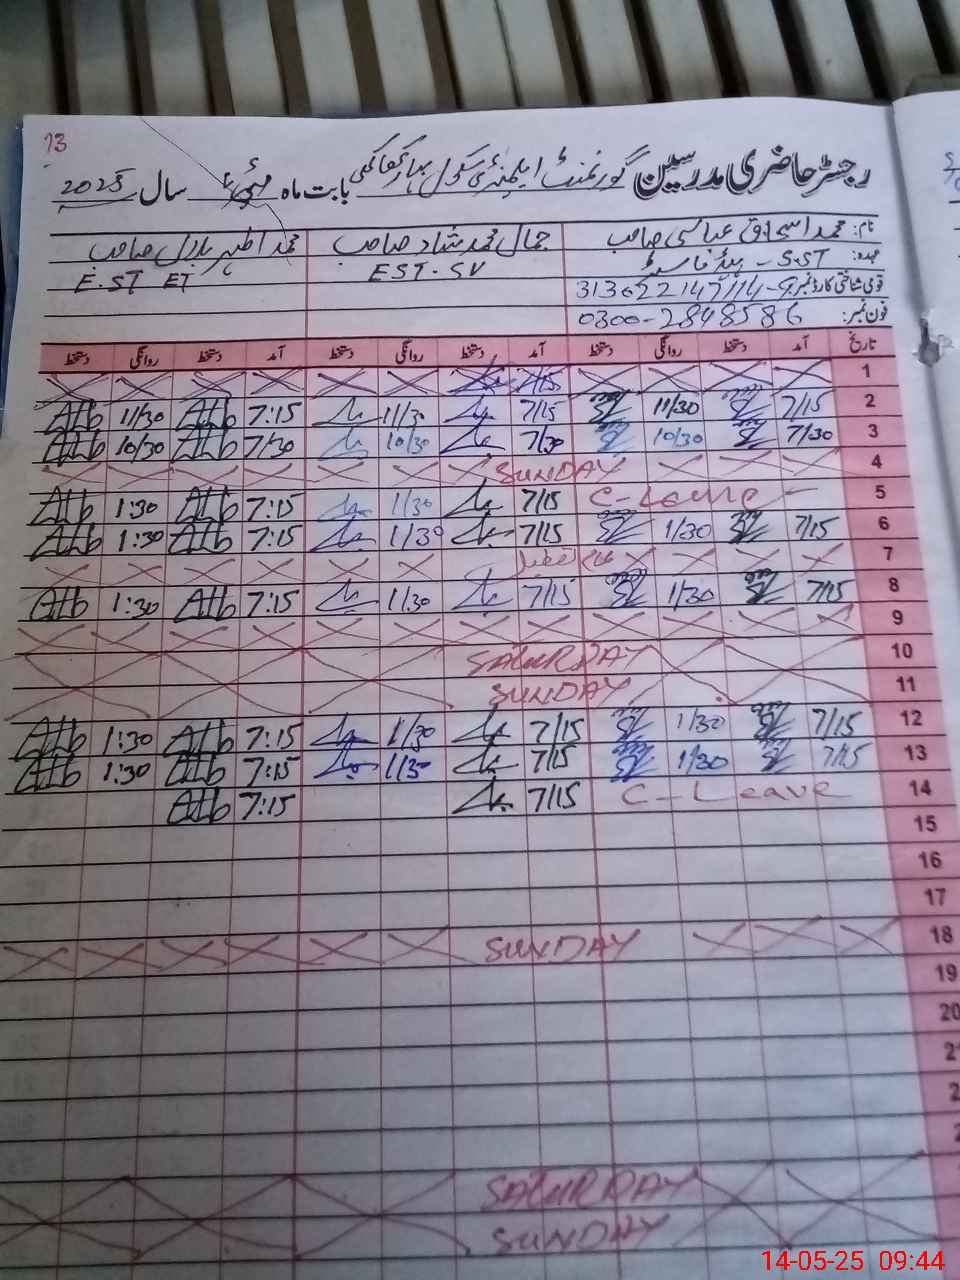 13
رجسٹر حاضری مدرسین گورنمنٹ ایلیمنٹری سکول بابت ماہ مئی سال 2025
نام: محمد اسحاق عباسی صاحب جمال محمد شاد صاحب محمد اطہر بلال صاحب
عہدہ: S.ST - ہیڈ ماسٹر EST. SV E.ST ET
قومی شناختی کارڈ نمبر: 313022147114-9
فون نمبر: 0300-2848586
تاریخ آمد دستخط روانگی دستخط آمد دستخط روانگی دستخط آمد دستخط روانگی دستخط
1 7/15
2 7/15 11/30 7/15 11/30 7:15 Atb 11/30 Atb
3 7/30 10/30 7/30 10/30 7/30 Atb 10/30 Atb
4 SUNDAY
5 C-Leave 7/15 1/30 7:15 Atb 1:30 Atb
6 7/15 1/30 7/15 1/30 7:15 Atb 1:30 Atb
7
8 7/15 1/30 7/15 1/30 7:15 Atb 1:30 Atb
9
10 SATURDAY
11 SUNDAY
12 7/15 1/30 7/15 1/30 7:15 Atb 1:30 Atb
13 7/15 1/30 7/15 1/30 7:15 Atb 1:30 Atb
14 C-Leave 7/15 7:15 Atb
15
16
17
18 SUNDAY
19
20
SATURDAY
SUNDAY
14-05-25 09:44